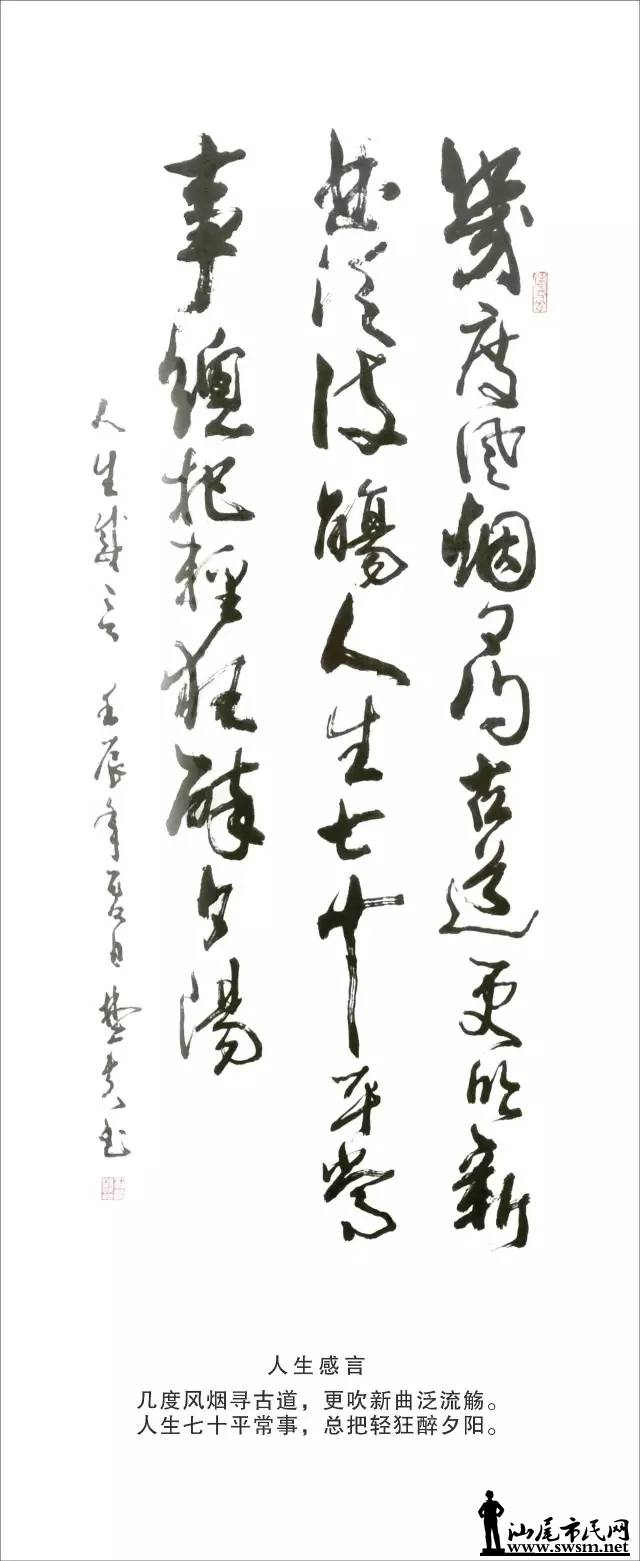 幾度風烟尋古道更吹新
曲泛流觴人生七十平常
事總把輕狂醉夕陽
人生感言 壬辰年夏日
人生感言
几度风烟寻古道，更吹新曲泛流觞。
人生七十平常事，总把轻狂醉夕阳。
汕尾市民网
www.swsm.net